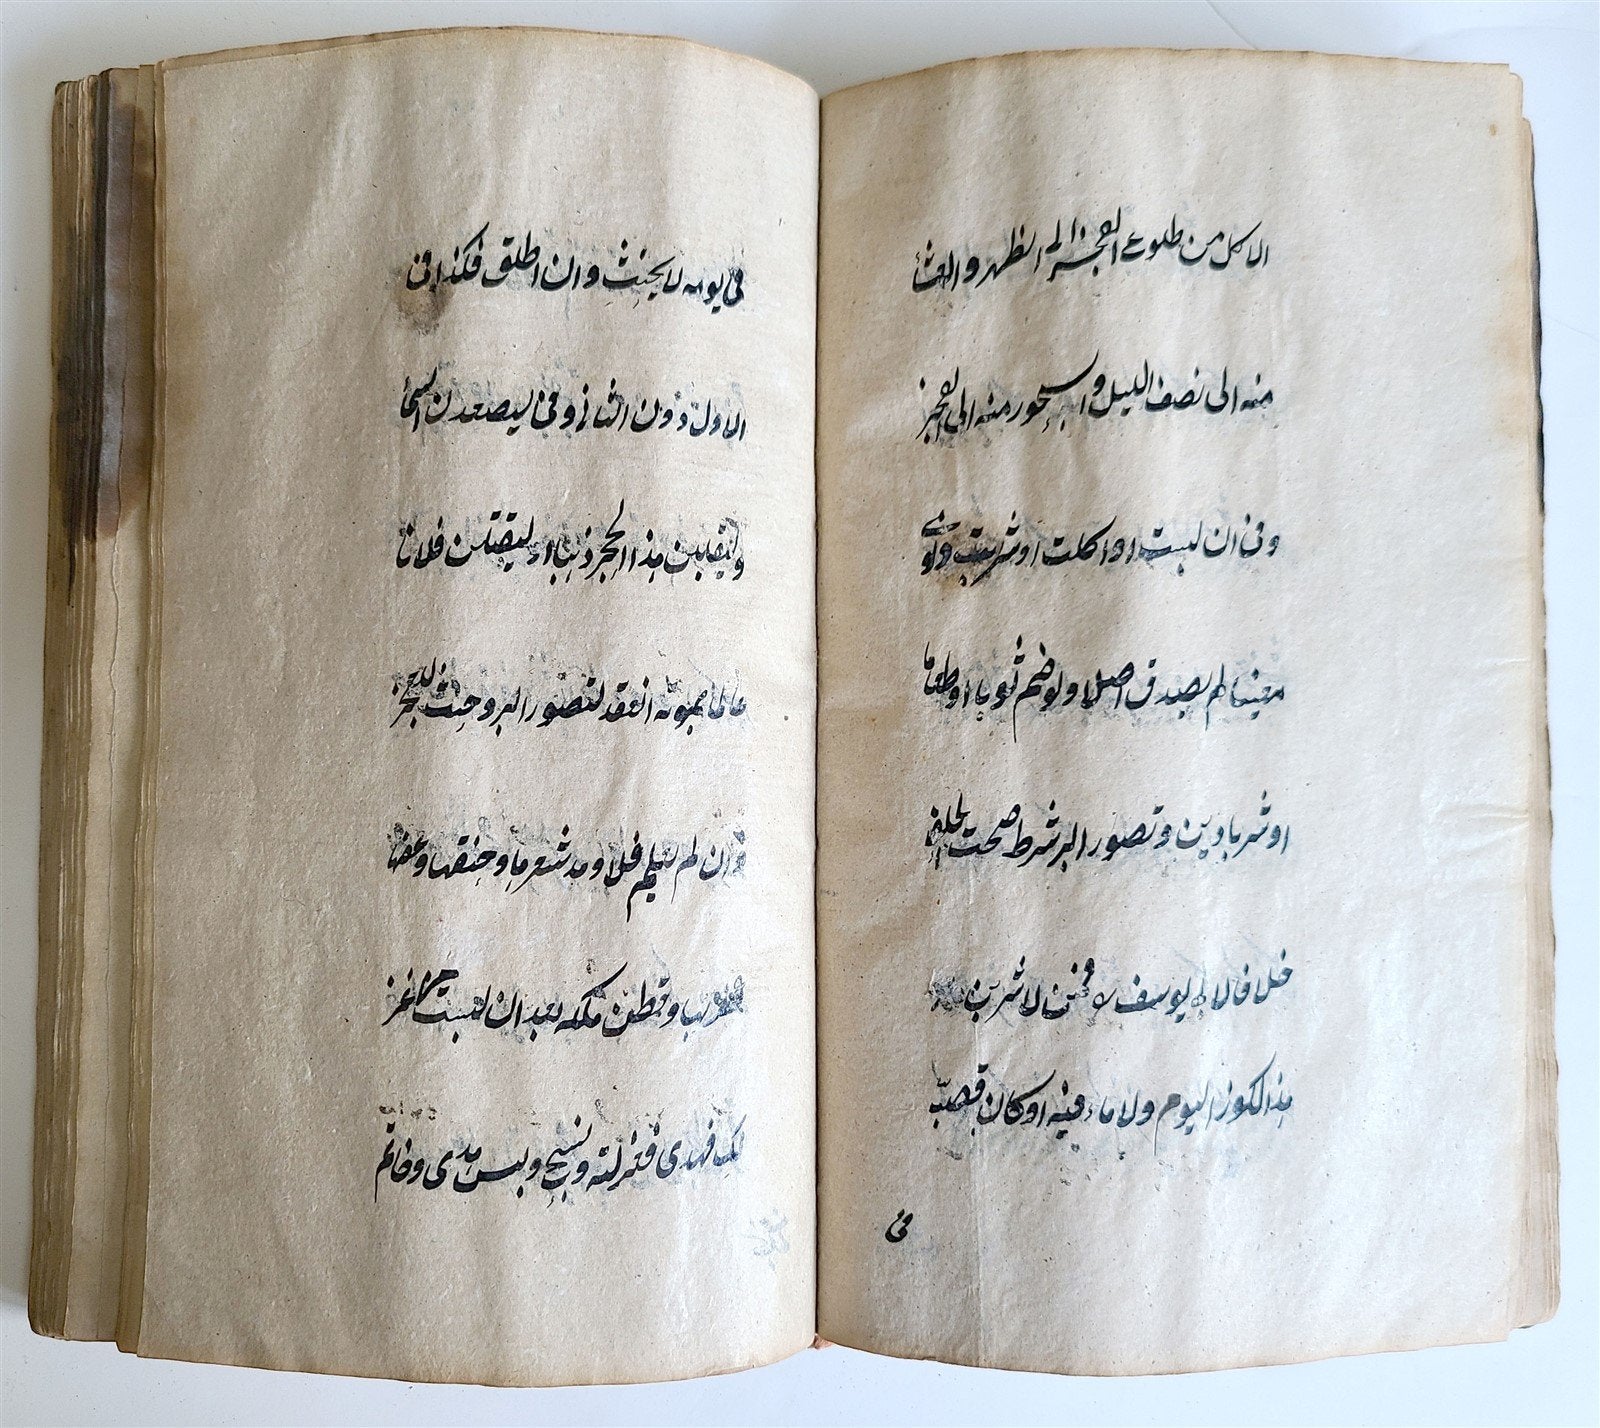 الاكل من طلوع الفجر الى الظهر والعشا
منه الى نصف الليل والسحور منه الى الفجر
وفى ان لبست او اكلت او شربت ونوى
معينا لم يصدق اصلا ولو ضم ثوبا او طعاما
او شرابا دين وتصور البر شرط صحت الحلف
خلافا لابى يوسف فمن لاشربن
هذا الكوز اليوم ولا ماء فيه او كان فصب
فى
فى يومه لا يحنث وان اطلق فكذا فى
الاول دون الثانى وفى ليصعدن السما
وليقلبن هذا الحجر ذهبا او ليقتلن فلانا
عالما بموته انعقد لتصور البر وحنث للعجز
وان لم يعلم فلا ومد شعرها وخنقها وعضها
كضرب وقطن ملكه بعد ان لبست من غز
لك فهدى فغزلته ونسج ولبس هدى وخاتم